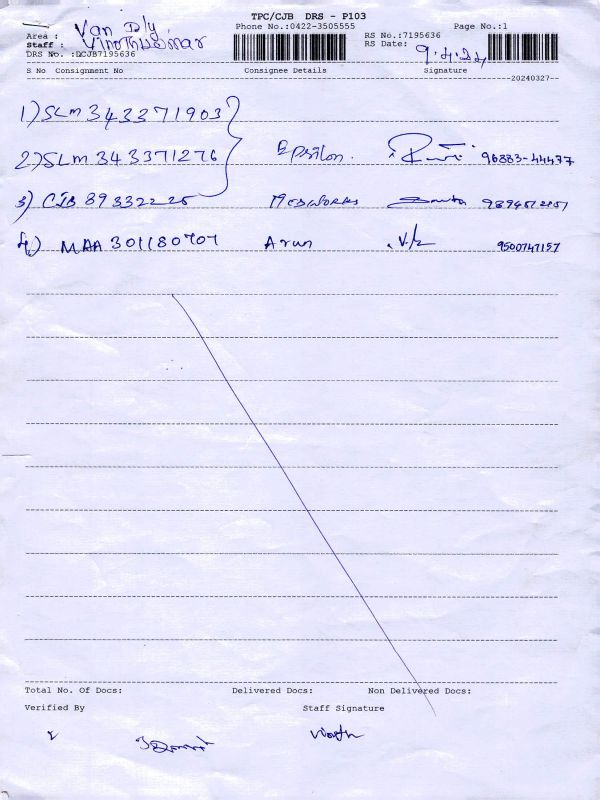 TPC/CJB DRS - P103
Phone No.:0422-3505555
Page No.:1
Area : Van D/y
RS No.:7195636
Staff : Vinothkumar
RS Date: 9.4.24
DRS No. :DCJB7195636
S No Consignment No Consignee Details Signature
20240327
1) SLM 343371903
2) SLM 343371276 Epsilon. 96883-44477
3) CJB 89332225
4) MAA 301180707 Arun 9500747157
Total No. Of Docs: Delivered Docs: Non Delivered Docs:
Verified By Staff Signature